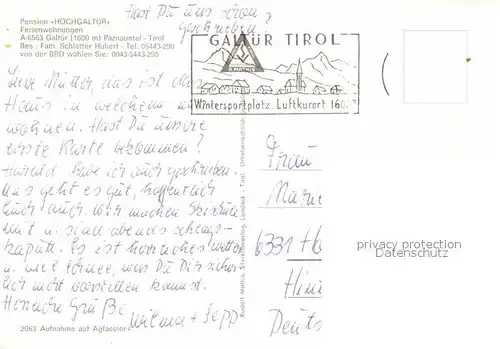 Pension «HOCHGALTÜR»
Ferienwohnungen
A-6563 Galtür (1600 m) Paznauntal - Tirol
Bes : Fam. Schlatter Hubert - Tel. 05443-290
von der BRD wählen Sie: 0043-5443-290
Hast Du uns schon
geschrieben?
GALTÜR TIROL
Wintersportplatz. Luftkurort 160
Liebe Mutter, das ist das
Haus in welchem wir
wohnen. Hast Du unsere
erste Karte bekommen?
Harald habe ich auch geschrieben.
Uns geht es gut, hoffentlich
Euch auch. Wir machen Skischule
mit u. sind abends
kaputt. Es ist herrliches Wetter
u. viel Schnee, was Du Dir sicher
nicht vorstellen kannst.
Herzliche Grüße
Wilma + Sepp
2063 Aufnahme auf Agfacolor
Rudolf Mathis, Silvrettaverlag, Landeck - Tirol. Urheberrechtlich
Frau
Marie
6331 Ho
Hin
Deuts
privacy protection
Datenschutz